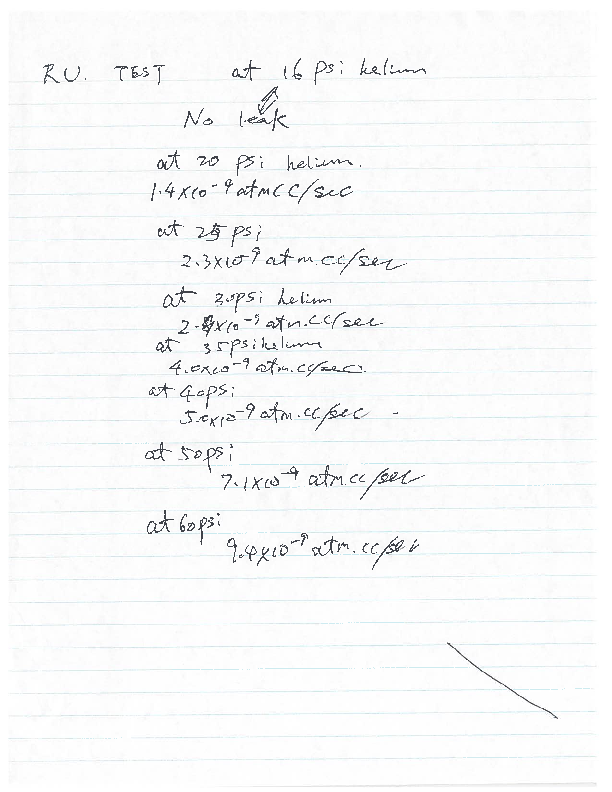 RU. TEST at 16 psi helium
No leak
at 20 psi helium.
1.4x10-9 atm CC/sec
at 25 psi
2.3x10-9 atm.cc/sec
at 30psi helium
2.9x10-9 atm.cc/sec
at 35psi helium
4.0x10-9 atm.cc/sec.
at 40psi
5.0x10-9 atm.cc/sec -
at 50psi
7.1x10-9 atm.cc/sec
at 60psi
9.4x10-9 atm.cc/sec